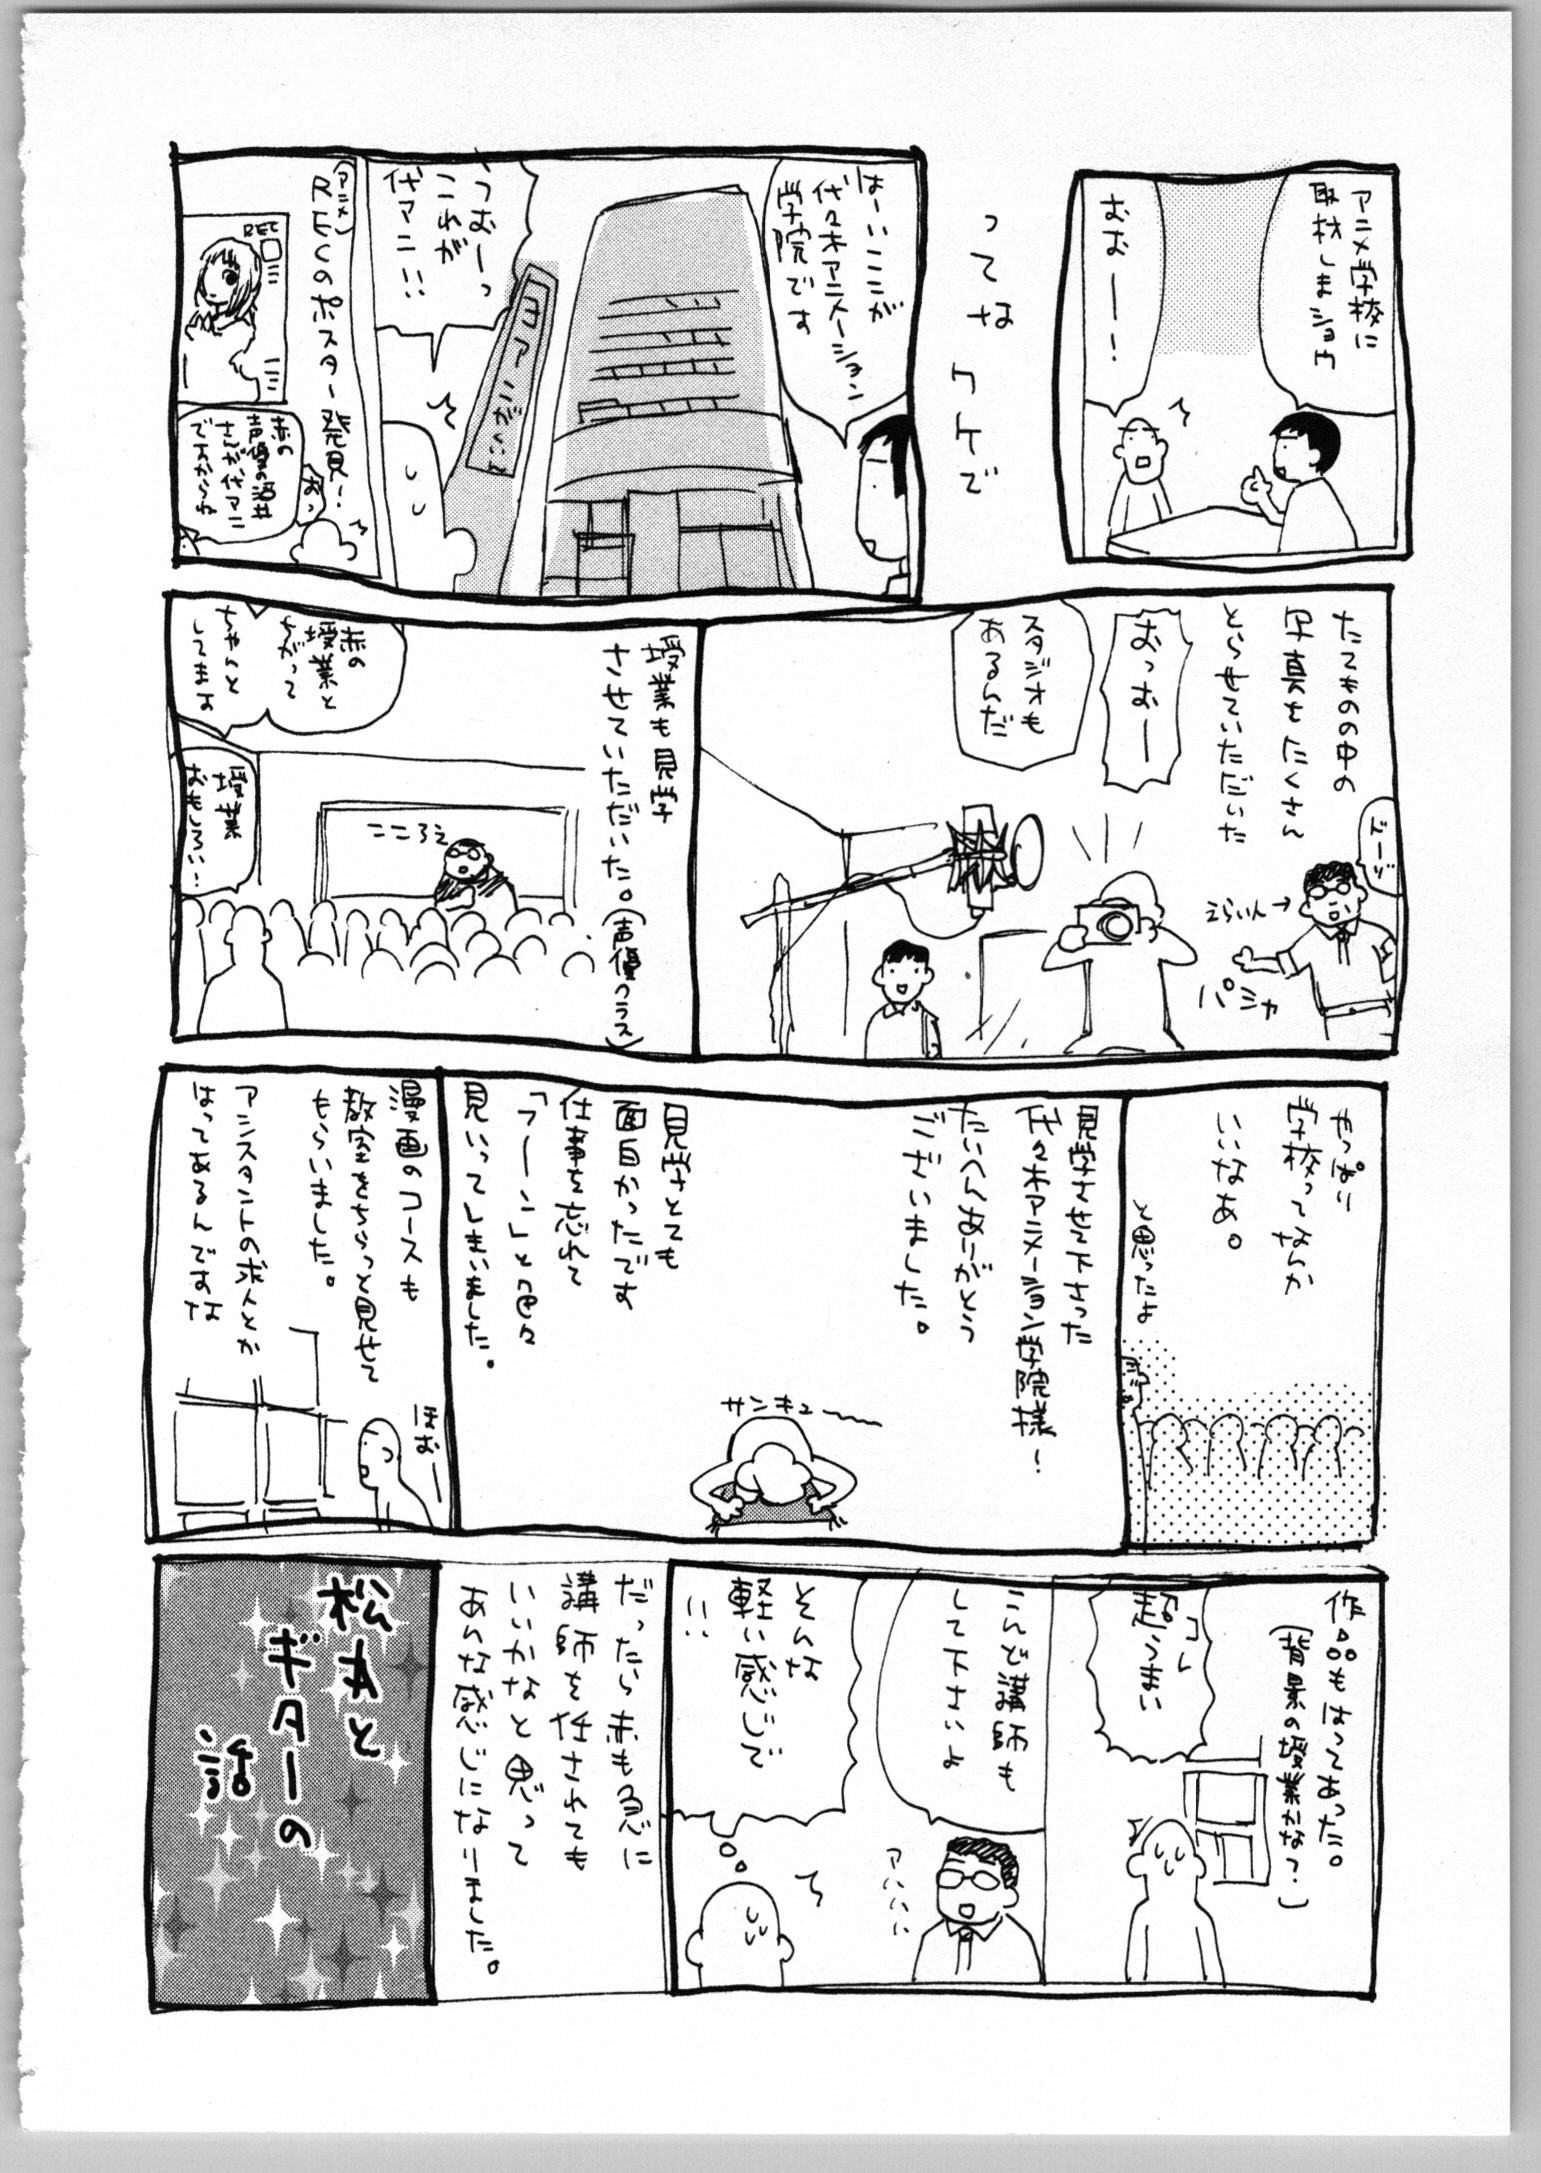 アニメ学校に
取材しまショウ
おおーー！
ってなワケで
はーいここが
代々木アニメーション
学院です
うおーっ
これが
代アニ!!
ヨアニがくいん
(アニメ)
RECのポスター発見！
REC
おっ
声優の酒井
さんが代アニ
ですからね
たてものの中の
写真をたくさん
とらせていただいた
おっおー
スタジオも
あるんだ
ドーゾ
えらい人→
パシャ
授業も見学
させていただいた。(声優クラス)
こころえ
授業と
ちがって
ちゃんと
してます
授業
おもしろい！
やっぱり
学校ってなんか
いいなあ。
と思ったよ
見学させて下さった
代々木アニメーション学院様！
たいへんありがとう
ございました。
サンキュ〜〜
見学とても
面白かったです
仕事を忘れて
「フーン」と色々
見いってしまいました。
漫画のコースも
教室をちらっと見せて
もらいました。
アシスタントの求人とか
はってあるんですな
ほおー
作品もはってあった。
(背景の授業かな？)
コレ
超うまい
こんど講師も
して下さいよ
アハハハ
そんな
軽い感じで
!!
だったら赤も急に
講師を任されても
いいかなと思って
あんな感じになりました。
松丸と
ギターの
話